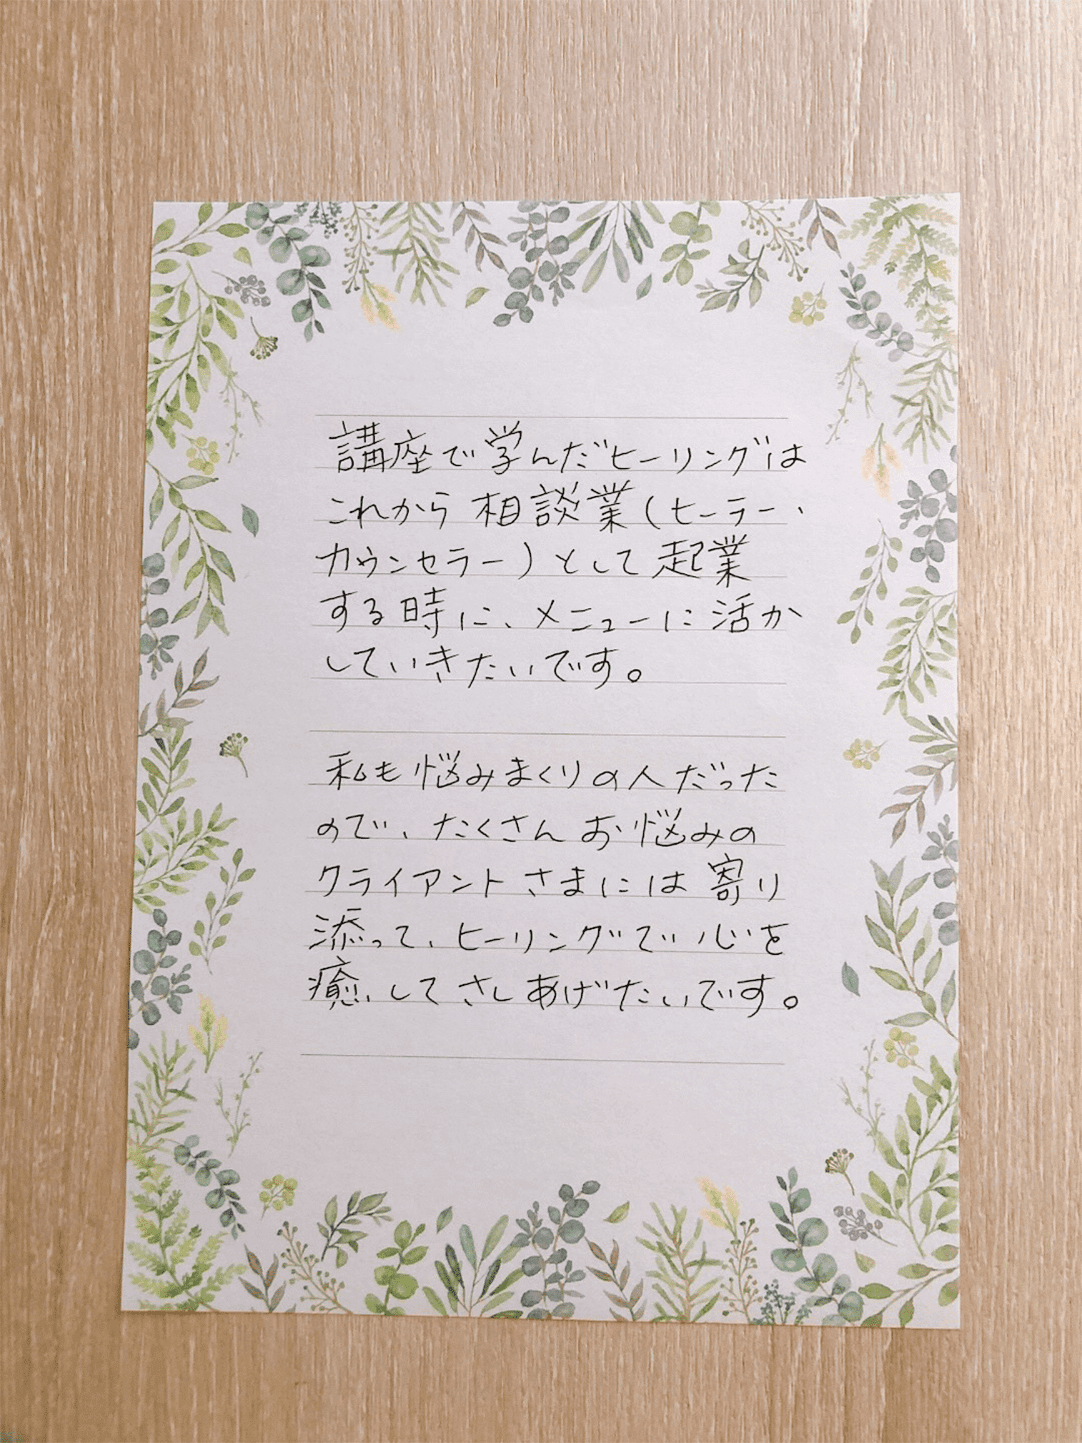 講座で学んだヒーリングは
これから相談業(ヒーラー、
カウンセラー)として起業
する時に、メニューに活か
していきたいです。
私も悩みまくりの人だった
ので、たくさんお悩みの
クライアントさまには寄り
添って、ヒーリングで心を
癒してさしあげたいです。